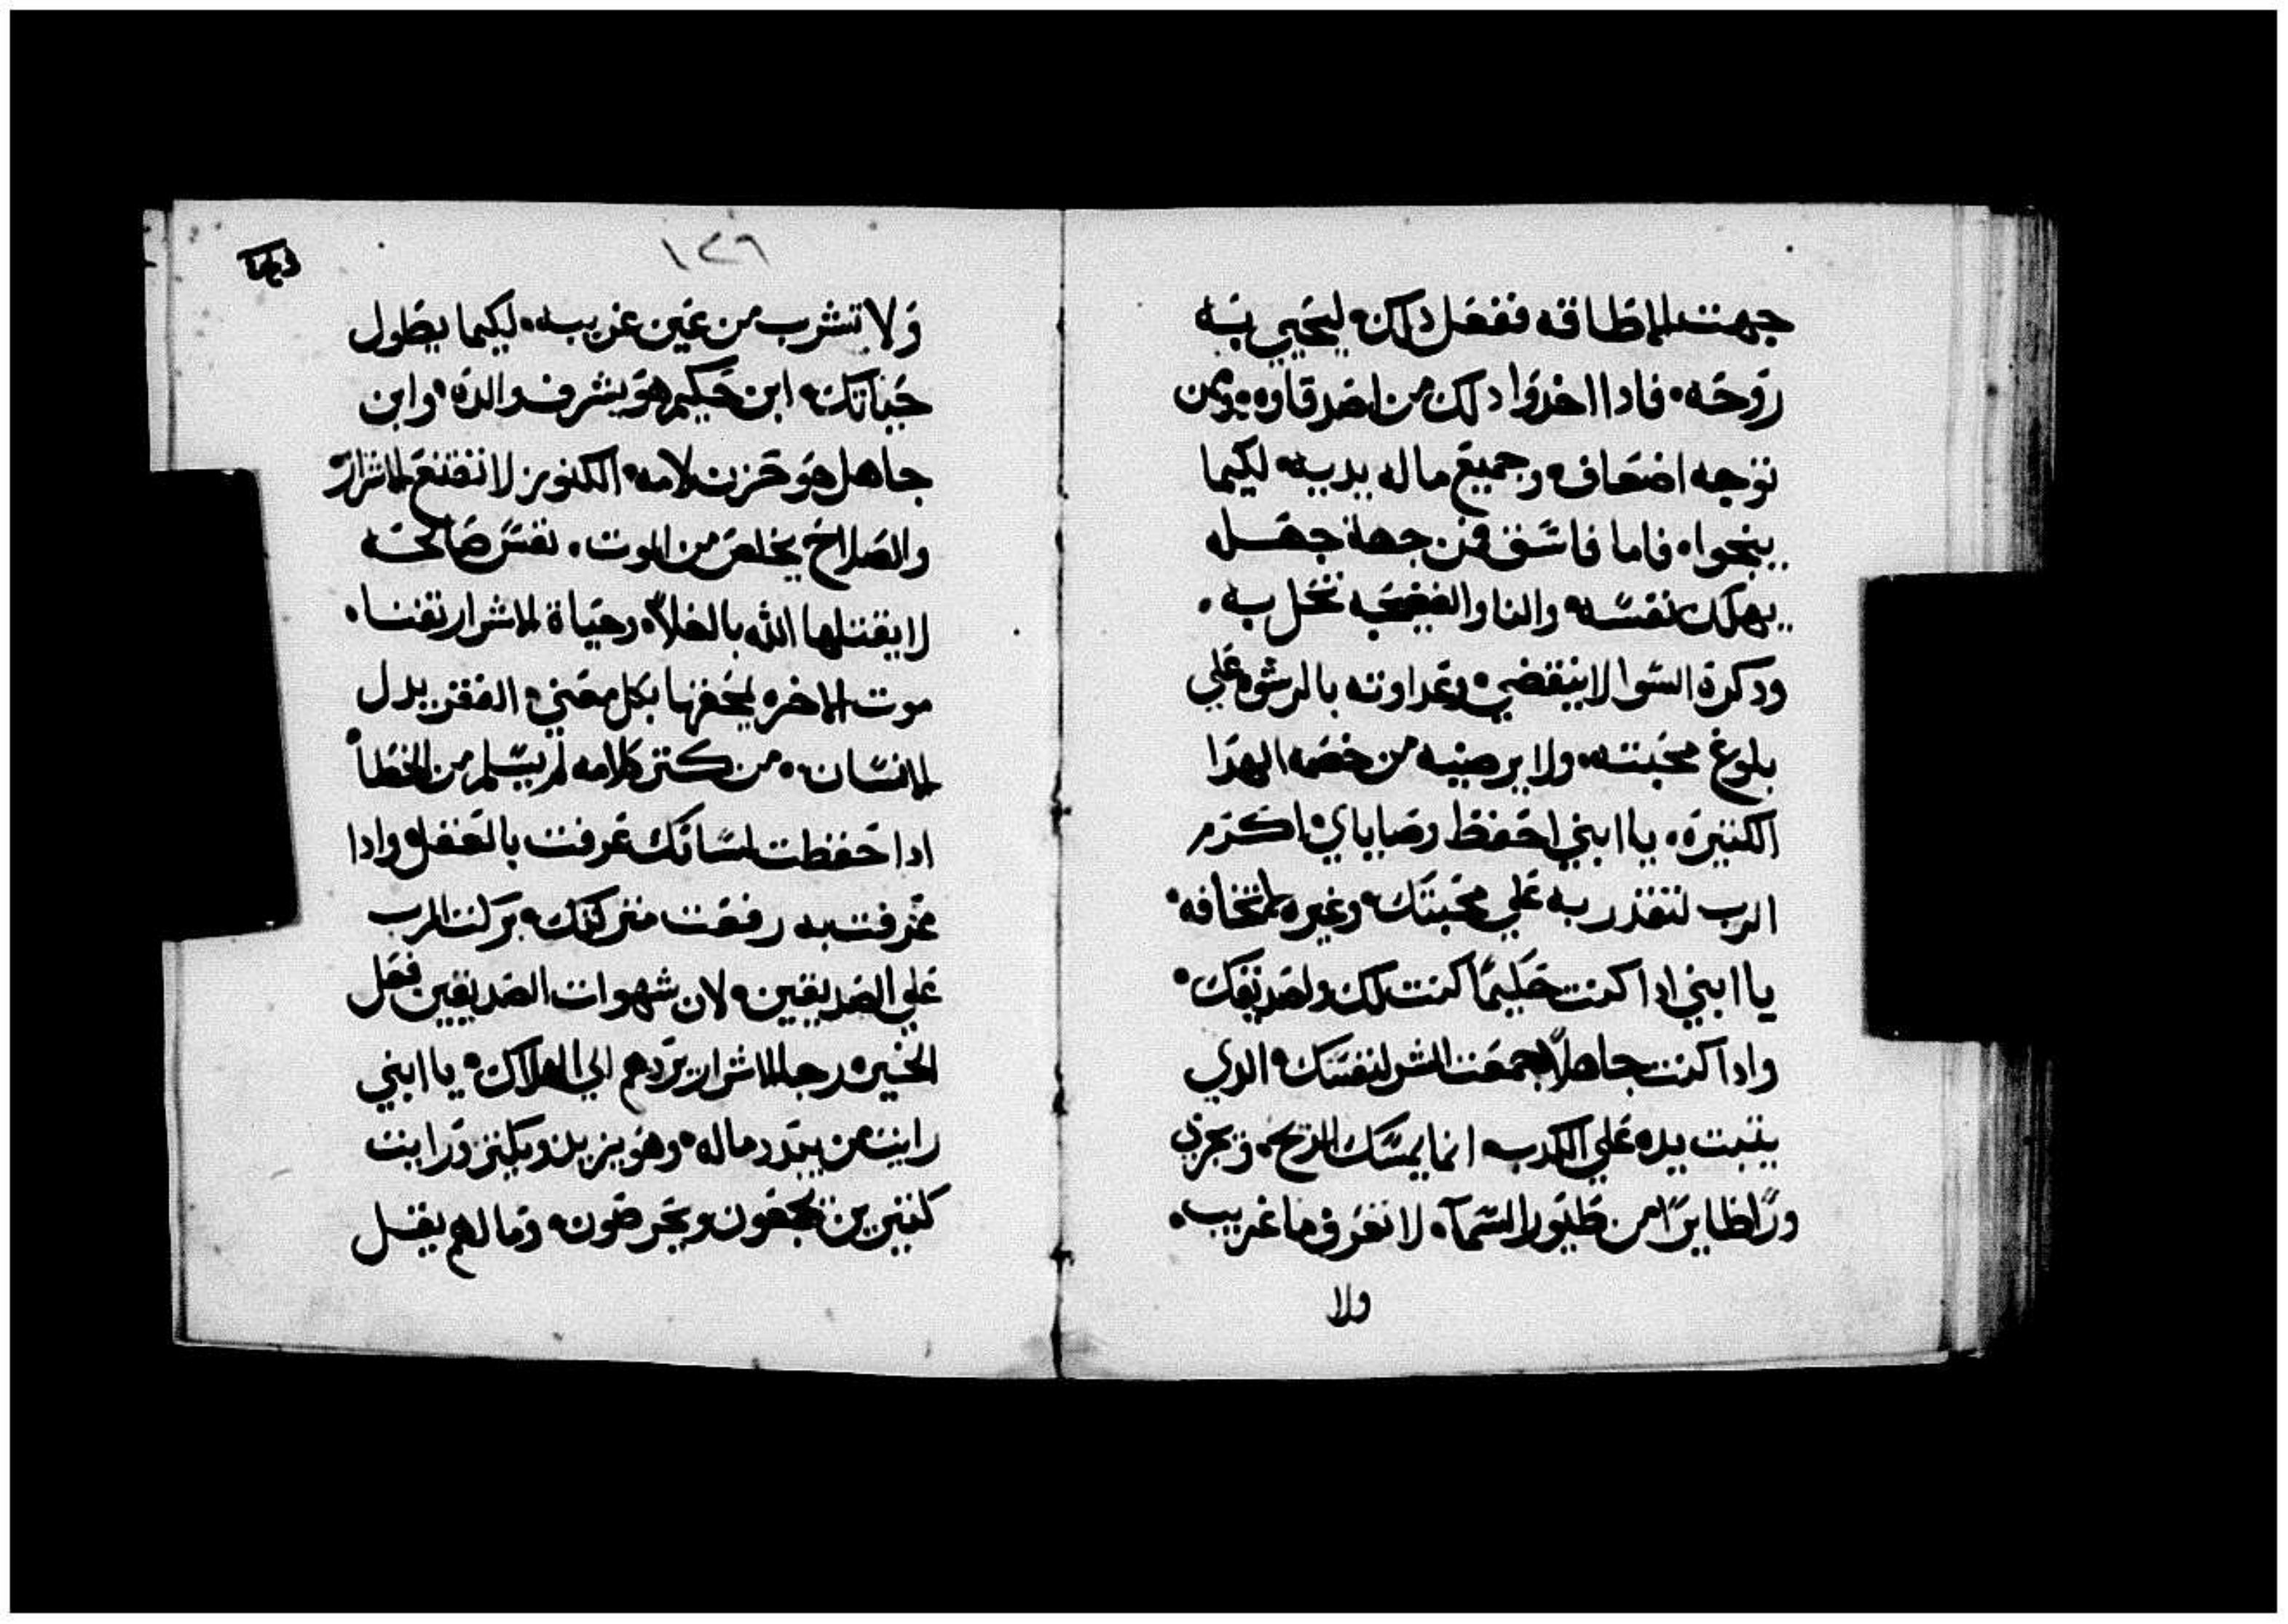 جهت الاطاقه ففعل دلك ليحيي به
روحه فادا اخدوا دلك من اصدقاوه ومن
توجه اضعاف وجميع ماله يديه ليكيما
ينجوا فاما فاسق فمن جهة جهله
يهلك نفسه والنا والفضيحه تحل به
ودكرة السوا لا ينقضي وعداوته بالرشوه علي
بلوغ محبته ولا يرضيه من خصمه الهدا
الكتيرة يا ابني احفظ وصاياي اكرم
الرب لتقدر به علي محبتك وغيره لا تخافه
يا ابني ادا كنت حليمًا كنت لك ولصديقك
وادا كنت جاهلاً جمعت الشر لنفسك الدي
يتبت يده علي الكدب انما يمسك الريح ويجري
ورا طايرًا من طيور السمآ لا تغرف ما غريب
ولا
١٢٦
ولا تشرب من عين غريبه ليكيما يطول
حياتك ابن حكيم هو يشرف والده وابن
جاهل هو حزن لامه الكنوز لا تنفع الاشرار
والصلاح يخلص من الموت نفس صالحه
لا يقتلها الله بالغلا وحياة الاشرار تفنا
موت الاخره يحفزها بكل معني الفقر يدل
الانسان من كتر كلامه لم يسلم من الخطا
ادا حفظت لسانك عرفت بالعقل وادا
عرفت به رفعت منزلتك بركت الرب
علي الصديقين لان شهوات الصديقين فعل
الخير ورجا الاشرار يردهم الي الهلاك يا ابني
رايت من يبدد ماله وهو يزيد ويكتر ورايت
كتيرين يجمعون ويحرصون ومالهم يقل